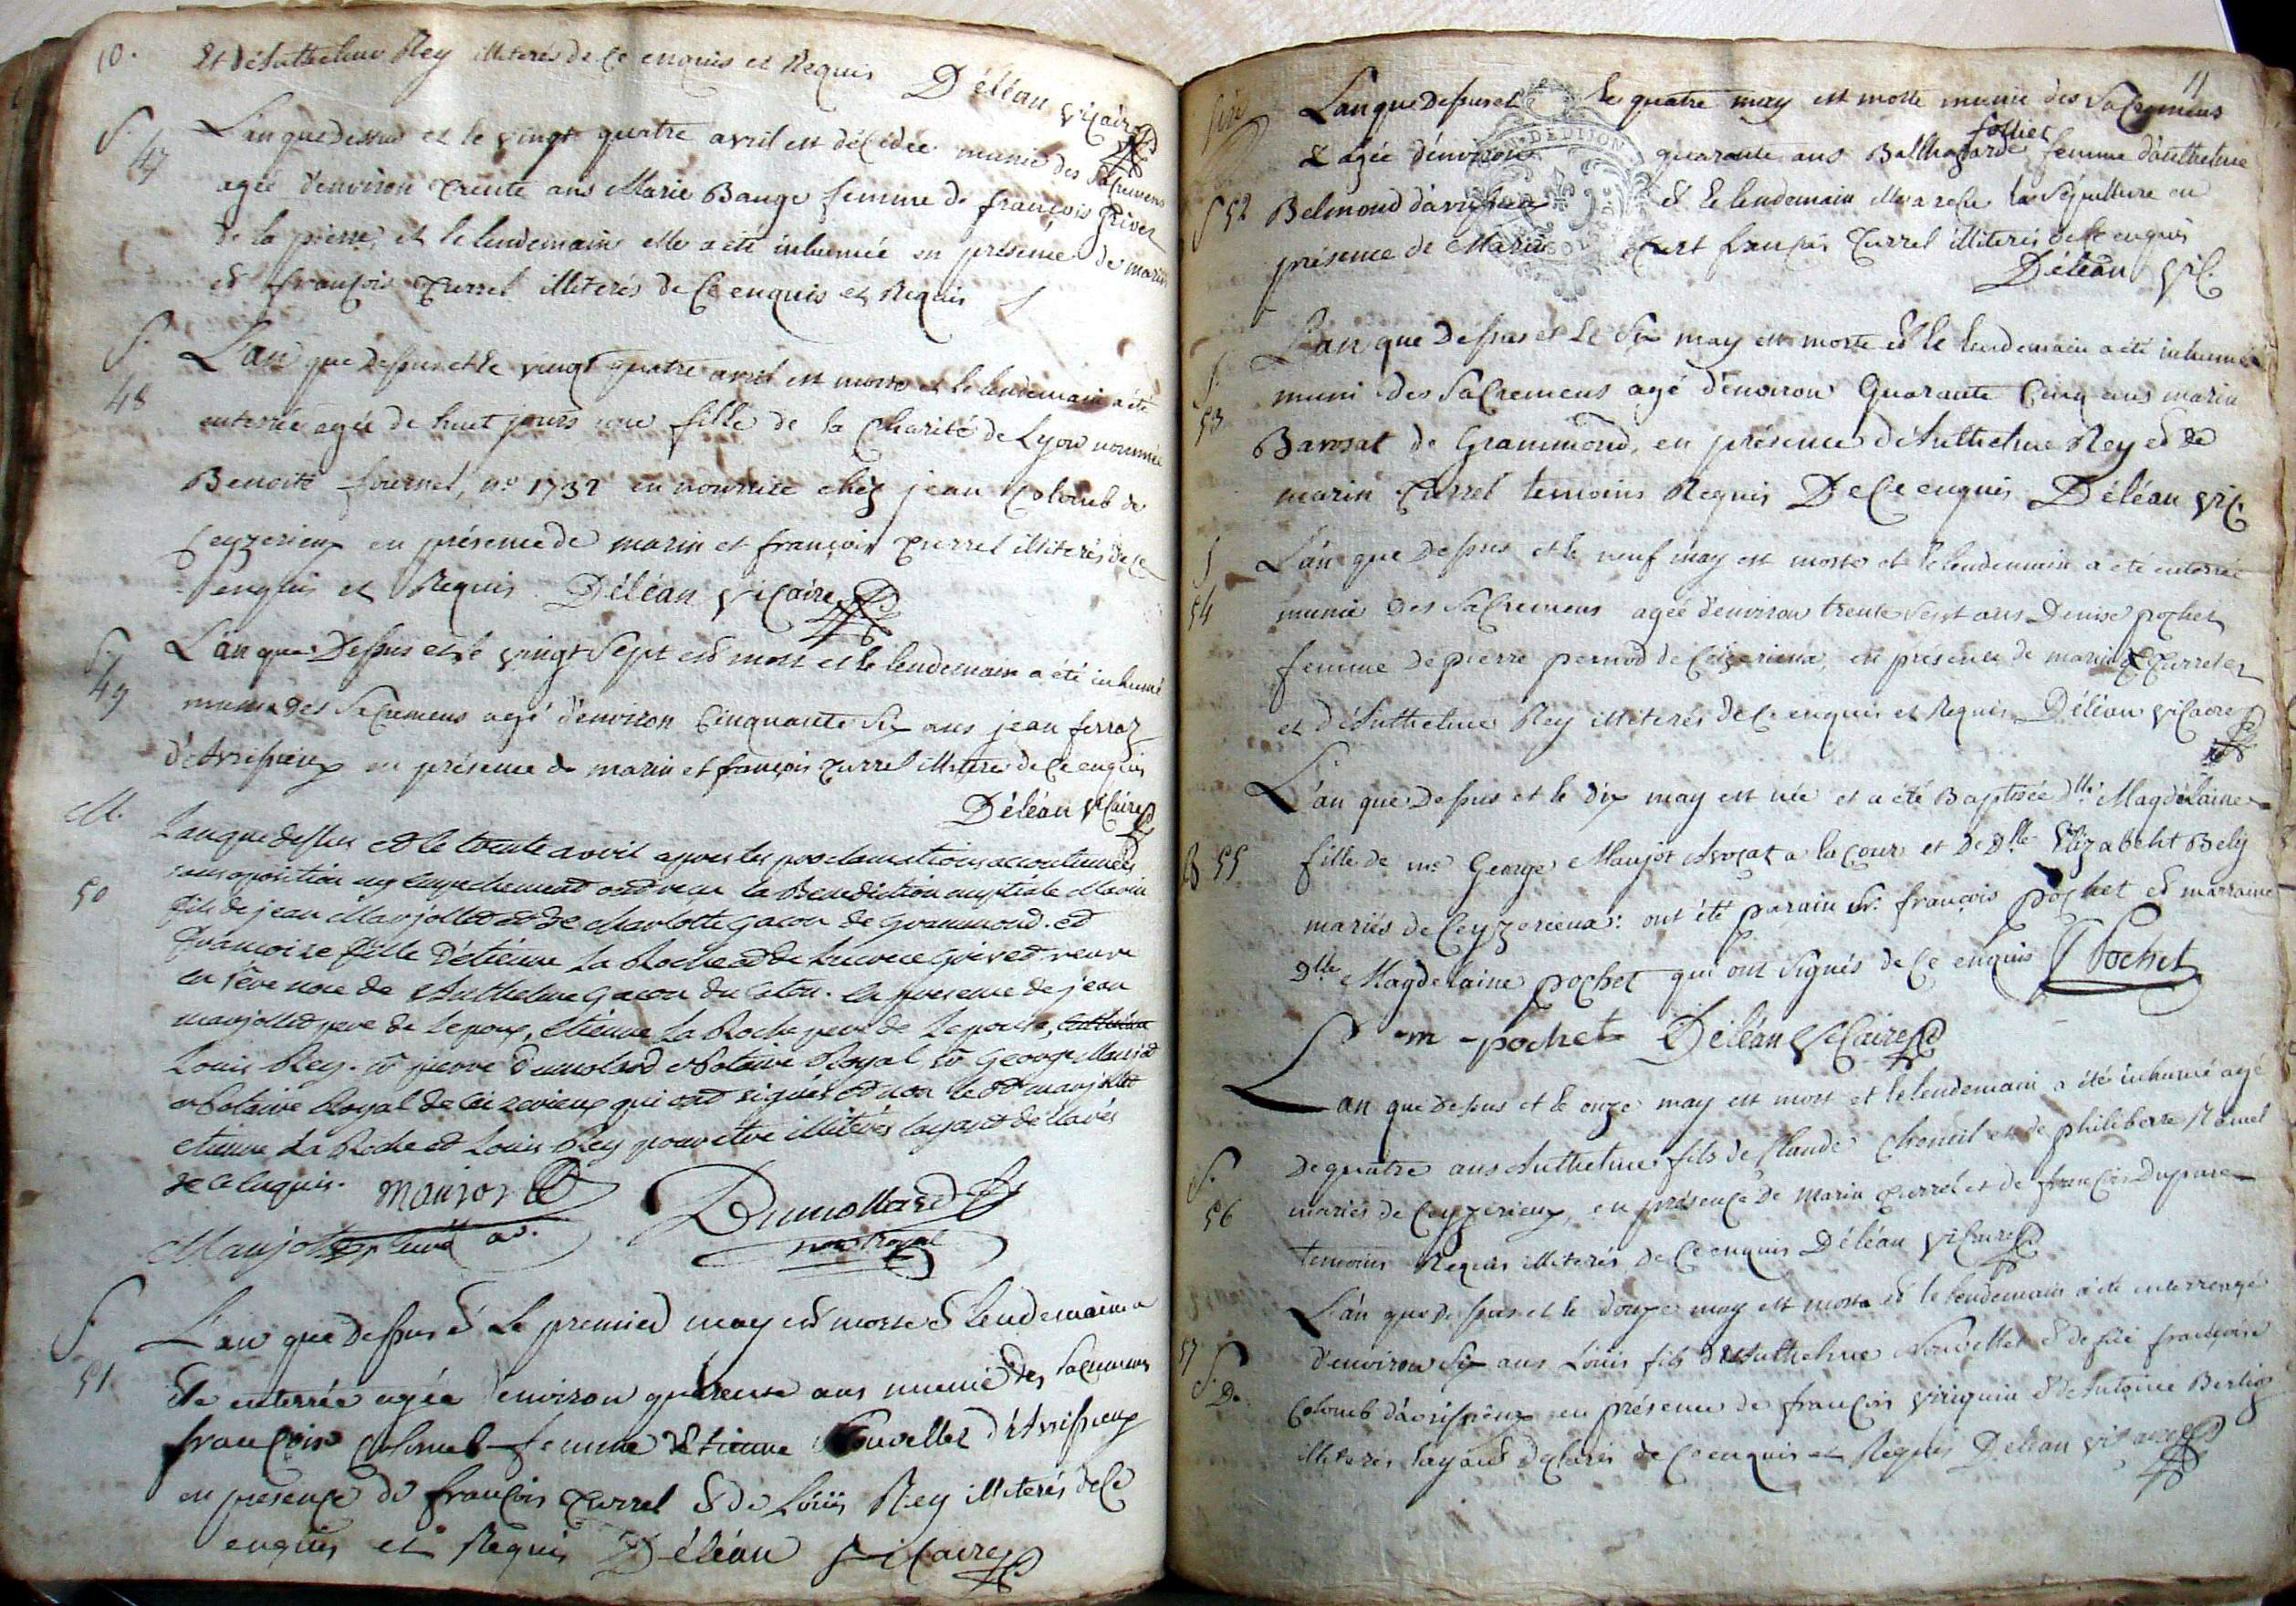 10.
Et d'Anthelme Rey illiterés de Ce enquis et Requis Déléan viCaire
S.
47
L'an que Dessus et le vingt quatre avril est déCédée munie des SaCremens
agée d'environ trente ans Marie Bauge femme de françois Grivet
de la pierre, et le lendemain elle a eté inhumée en présence de marin
et françois Turrel illiterés de Ce enquis et Requis
S.
48
L'an que Dessus et le vingt quatre avril est morte et le lendemain a été
enterrée agée de huit jours une fille de la Charité de Lyon nommée
Benoite fournel, no 1732 en nourrice chez jean Colomb de
Ceyzerieux en présence de marin et françois Turrel illiterés de Ce
enquis et Requis Déléan viCaire
S.
49
L'an que Dessus et le vingt Sept est mort et le lendemain a été inhumé
muni des SaCremens agé d'environ Cinquante Six ans jean ferraz
d'Avrissieux en présence de marin et françois Turrel illiterés de Ce enquis
Déléan viCaire
M.
50
L'an que dessus et le trente avril apres les proclamations accoutumées
sans oposition ny empechement ont reçu la Benediction nuptiale Marin
fils de jean Marjollet et de Charlotte Gacon de Grammond. et
françoise fille d'étienne La Roche et de Lucrece Grivet veuve
en 1ere noce de Anthelme Gacon du Caton. en presence de jean
marjollet pere de lepoux, étienne La Roche pere de l'epouse,
Louis Rey. Sr pierre Dumolard Notaire Royal, Sr George Maujot
Notaire Royal de Ceizerieux qui ont signés et non le dt marjollet
etienne La Roche et Louis Rey pour etre illiterés layant déclarés
de Ce enquis. maujot
Dumollard
not Royal
Maujot curé
S.
51
L'an que Dessus & Le premier may est morte & Lendemain a
été enterrée agée d'environ quarente ans munie des SaCremens
françoise Colomb femme d'Etienne Nouvellet d'Avrissieux
en presence de françois Turrel & de Loüis Rey illiterés de Ce
enquis et Requis Déléan viCaire
11
S 52
L'an que Dessus et le quatre may est morte munie des SaCremens
& agée d'environ quarante ans Balthazarde follier femme d'Anthelme
Belmond d'avrissieux & le lendemain elle a reçu la Sépulture en
présence de Marin et françois Turrel illiterés de Ce enquis
Déléan viC.
DE DIJON
S.
53
L'an que Dessus et Le Six may est mort & le lendemain a été inhumé
muni des SaCremens agé d'environ Quarante Cinq ans marin
Barosat de Grammond, en présence d'Anthelme Rey et de
marin Turrel temoins Requis De Ce enquis Déléan viC.
S
54
L'an que Dessus et le neuf may est morte et le lendemain a été enterrée
munie des SaCremens agée d'environ trente Sept ans Denise pochet
femme de pierre pernod de Ceizerieux, en presence de marin Turrel
et d'Anthelme Rey illiterés de Ce enquis et Requis Déléan viCaire
B 55
L'an que Dessus et le dix may est née et a été Baptisée Dlle Magdelaine
fille de me George Maujot Avocat a la Cour et De Dlle Elizabeht Bely
mariés de Ceyzerieux: ont été parain Sr. françois pochet et marraine
Dlle Magdelaine pochet qui ont Signés de Ce enquis Pochet
m pochet Déléan viCaire
S.
56
L'an que Dessus et le onze may est mort et le lendemain a été inhumé agé
De quatre ans Anthelme fils de Claude Chomeil et de philiberte Ramel
mariés de Ceyzerieux, en présence De marin Turrel et de françois Dupare
temoins Requis illiterés de Ce enquis Déléan viCaire
57
S.
L'an que Dessus et le douze may est mort et le lendemain a été enterré agé
d'environ Six ans Loüis fils d'Anthelme Nouvellet & de feüe françoise
Colomb d'avrissieux en présence de françois viriguin & de Antoine Berlioz
illiterés layant déclarés de Ce enquis et Requis Déléan viCaire